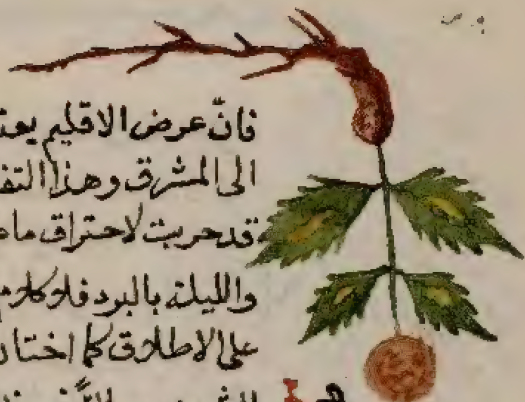 فانّ عرض الاقليم يعتـ
الى المشرق وهذا التفـ
قد حربت لاحتراق ما
والليلة بالبرد فلا كلام
على الاطلاق كما اختار